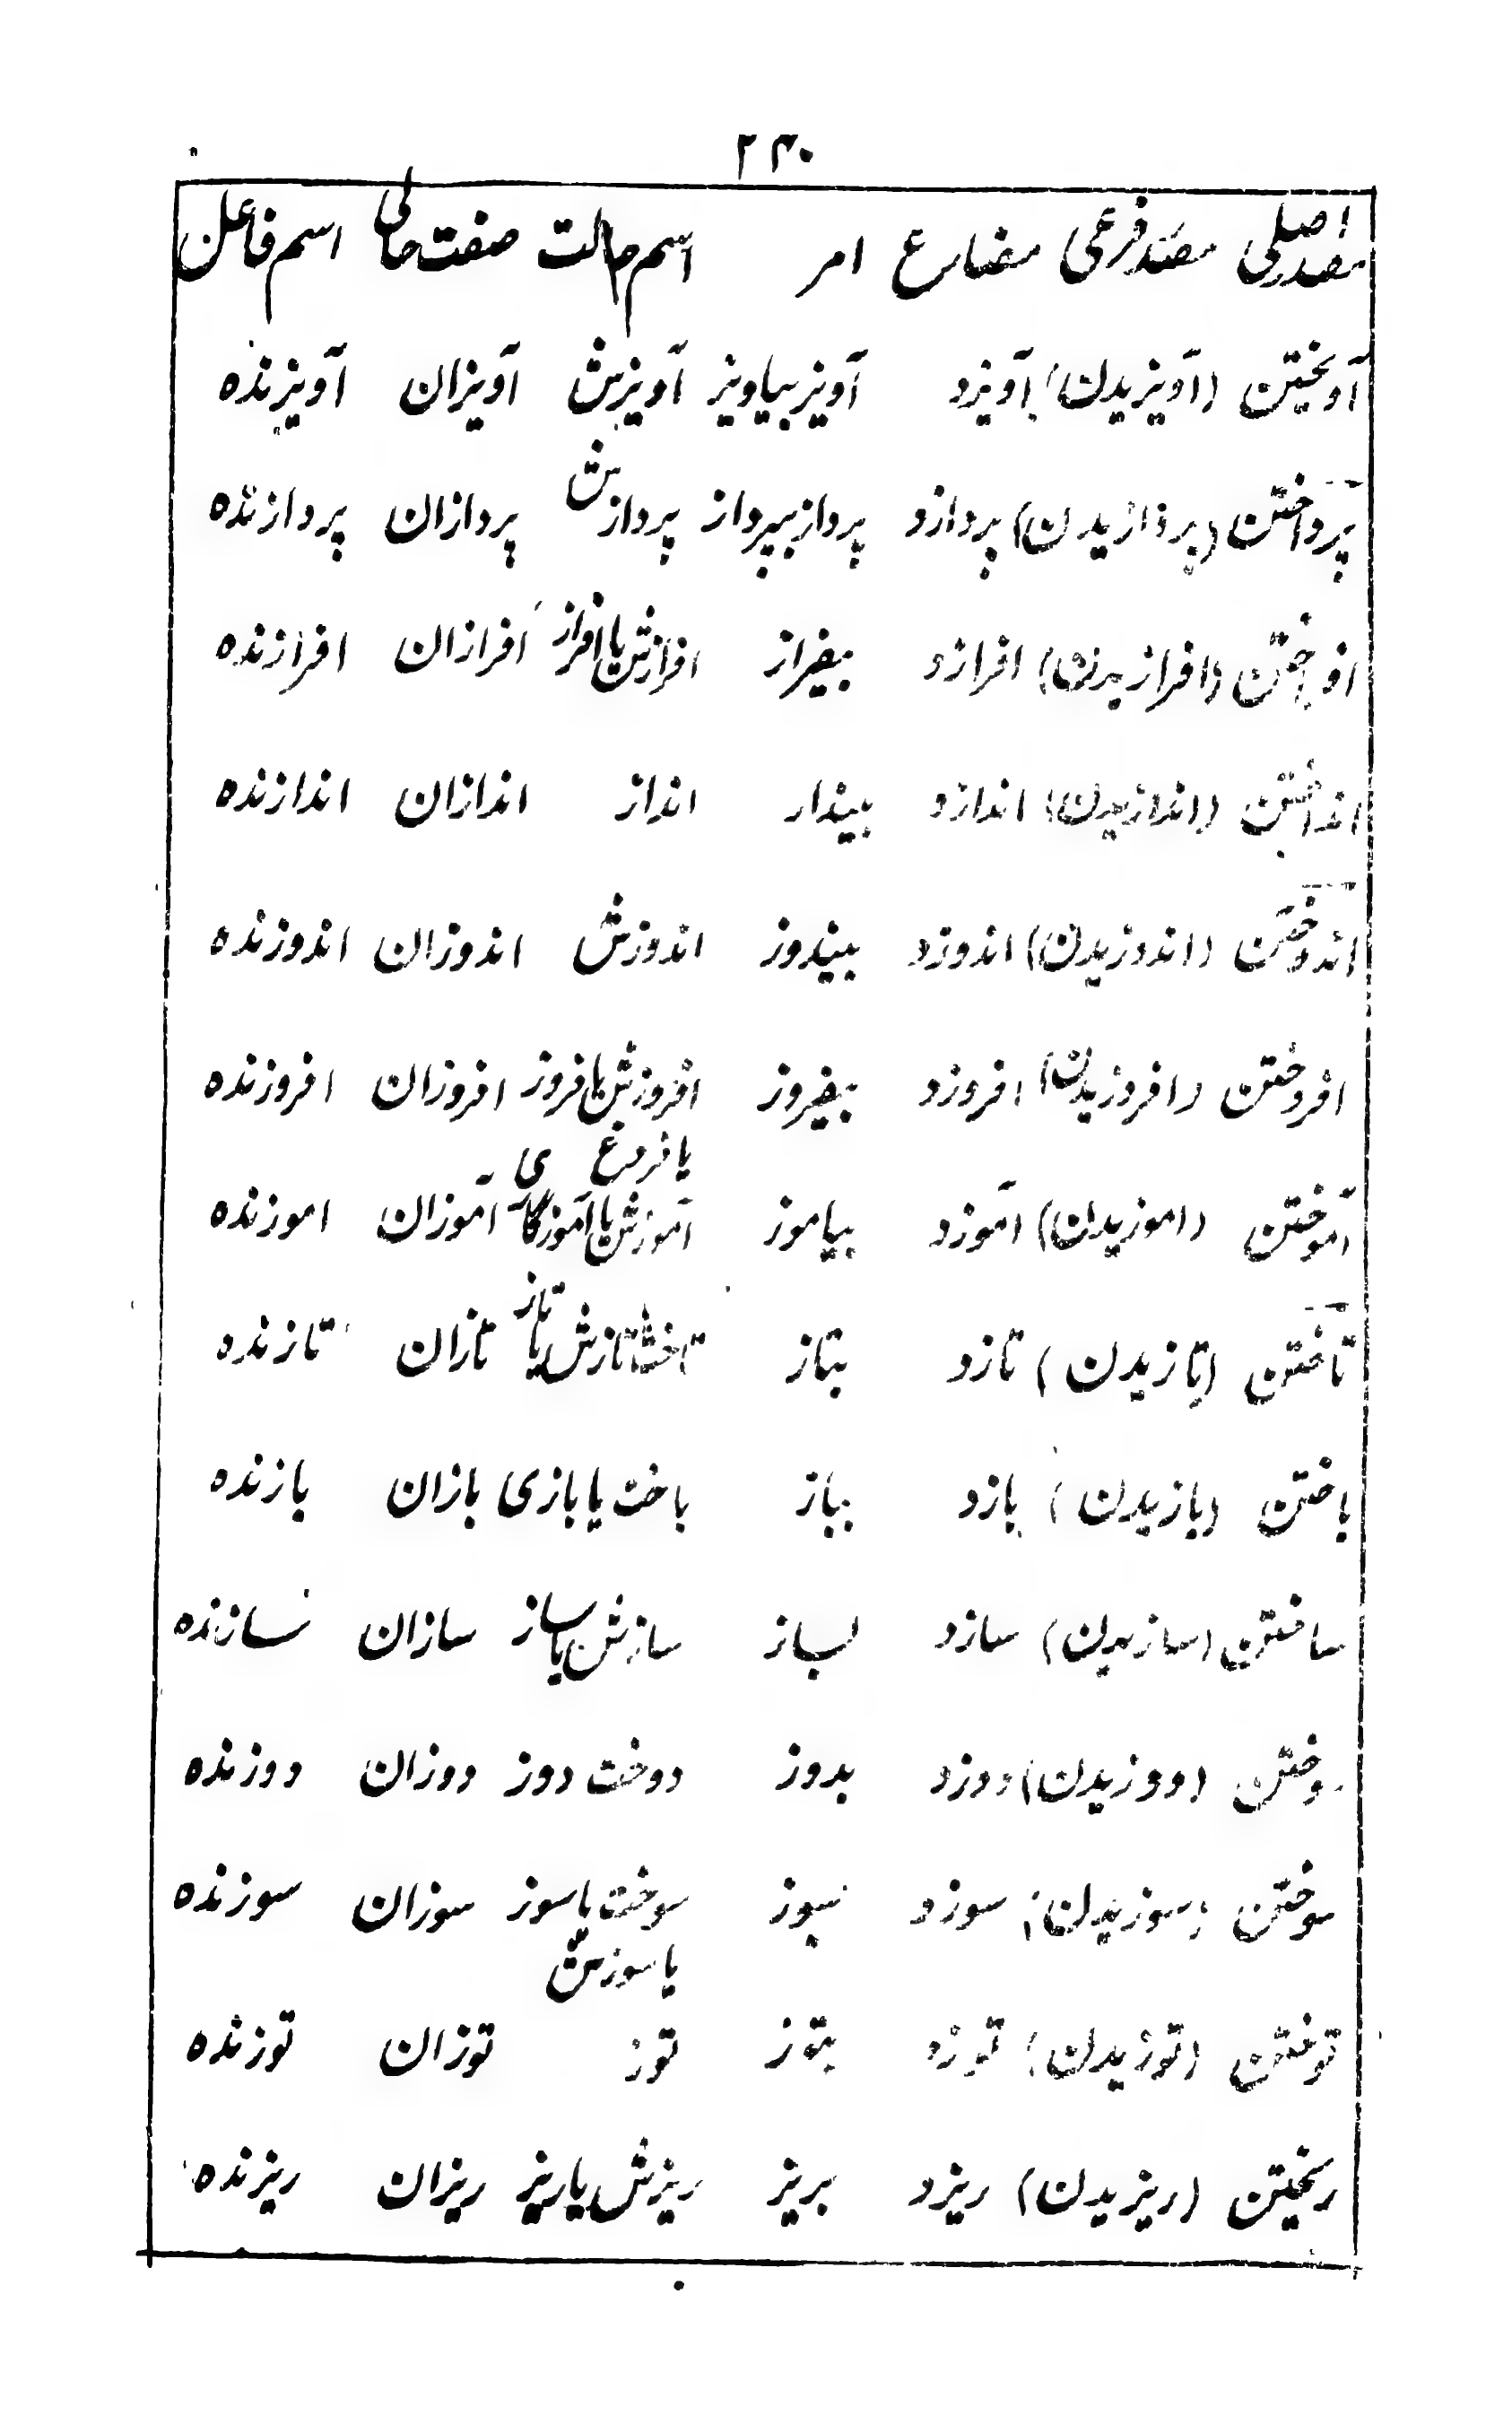 ۲۳۰
مصدر اصلی مصدر فرعی مضارع امر اسم حالت صفت حالی اسم فاعل
آویختن (آویزیدن) آویزد آویز بیاویز آویزش آویزان آویزنده
پرداختن (پردازیدن) پردازد پرداز بپرداز پردازش پردازان پردازنده
افراختن (افرازیدن) افرازد بیفراز افرازش یا افراز افرازان افرازنده
انداختن (اندازیدن) اندازد بیندار انداز اندازان اندازنده
اندوختن (اندوزیدن) اندوزد بیندوز اندوزش اندوزان اندوزنده
افروختن (افروزیدن) افروزد بیفروز افروزش یا فروز افروزان افروزنده
یا فروغ
آموختن (اموزیدن) آموزد بیاموز آموزش یا آموزگاری آموزان اموزنده
تاختن (تازیدن) تازد بتاز تاخت تازش یا تاز تازان تازنده
باختن (بازیدن) بازد بباز باخت یا بازی بازان بازنده
ساختن (سازیدن) سازد بساز سازش یا ساز سازان سازنده
دوختن (دوزیدن) دوزد بدوز دوخت دوز دوزان دوزنده
سوختن (سوزیدن) سوزد بسوز سوخت یا سوز سوزان سوزنده
یا سوزش
توختن (توزیدن) توزد بتوز توز توزان توزنده
ریختن (ریزیدن) ریزد بریز ریزش یا ریز ریزان ریزنده